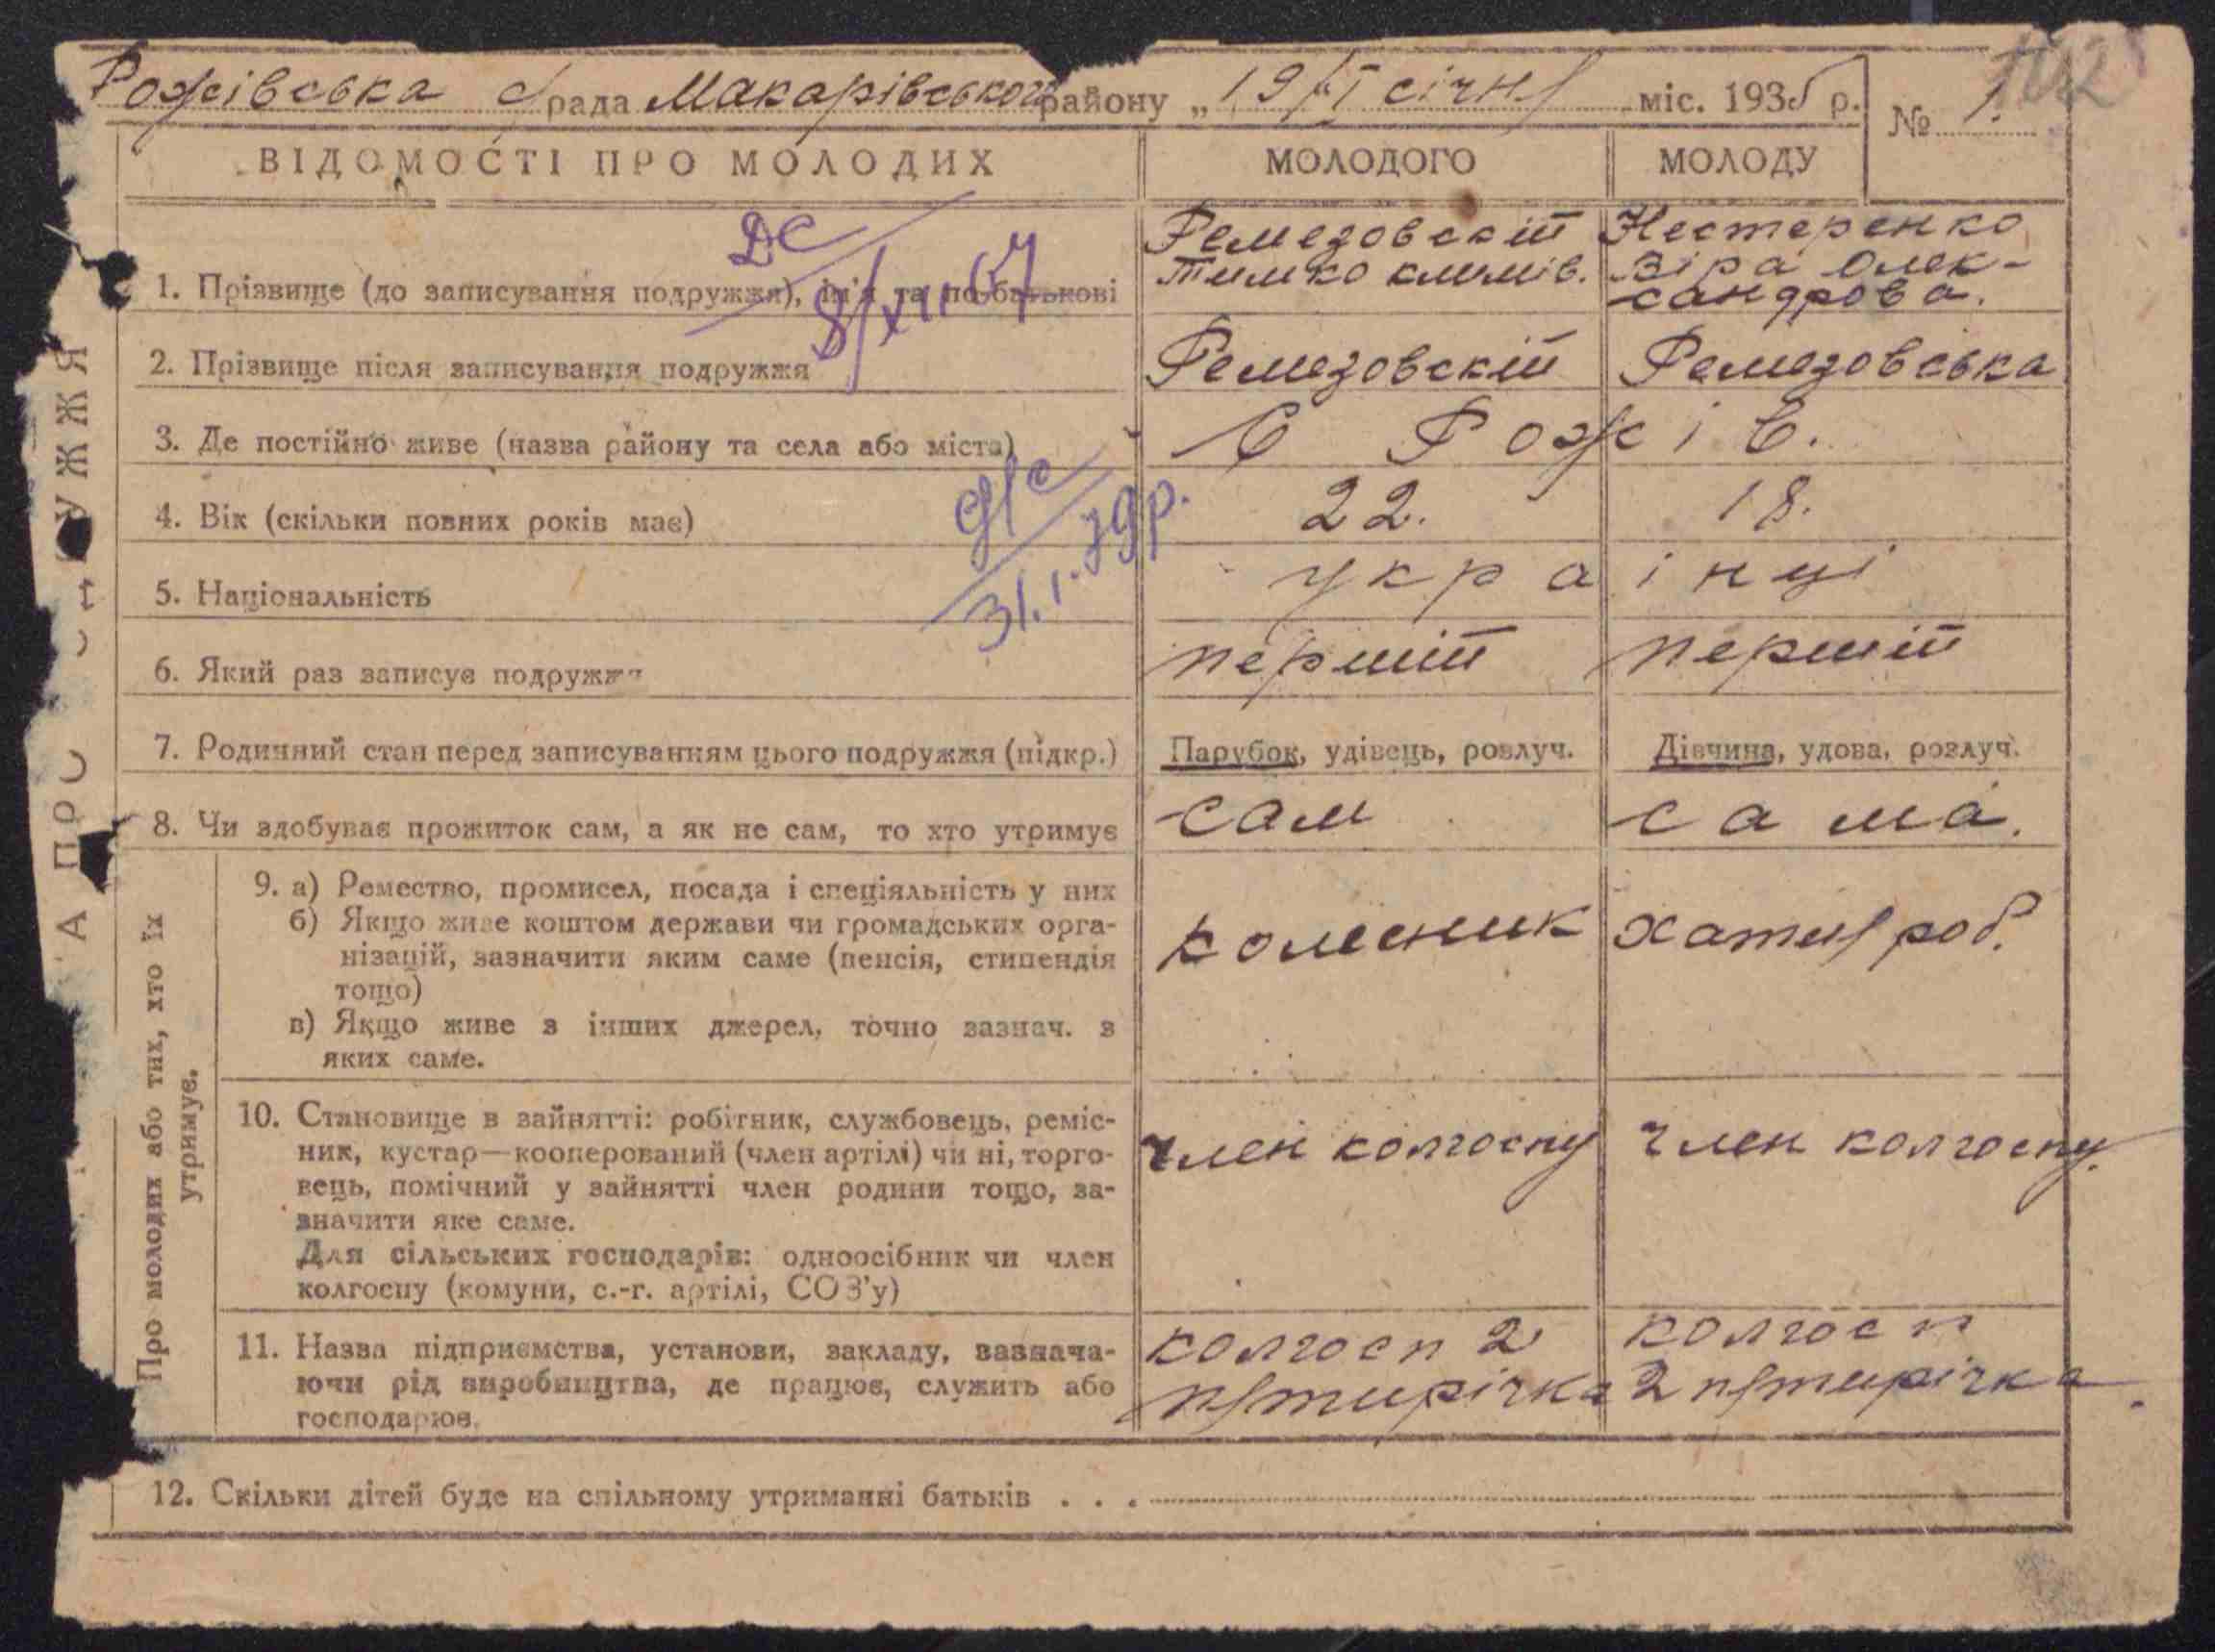 Рожівська с/рада Макарівського району „19/I січня міс. 1935 р. № 1.
102
ВІДОМОСТІ ПРО МОЛОДИХ МОЛОДОГО МОЛОДУ
1. Прізвище (до записування подружжя), ім'я та по-батькові
Ремезовскій Нестеренко
Тимко Климів. Віра Олек-
сандрова.
ДС
8/XII 67
2. Прізвище після записування подружжя Ремезовскій Ремезовська
3. Де постійно живе (назва району та села або міста) С Рожів.
4. Вік (скільки повних років має) 22. 18.
д/с
31.1.
5. Національність українці
6. Який раз записує подружжя першій першій
7. Родинний стан перед записуванням цього подружжя (підкр.) Парубок, удівець, розлуч. Дівчина, удова, розлуч.
8. Чи здобуває прожиток сам, а як не сам, то хто утримує сам сама.
Про молодих або тих, хто їх
утримує.
9. а) Ремество, промисел, посада і спеціяльність у них
б) Якщо живе коштом держави чи громадських орга-
нізацій, зазначити яким саме (пенсія, стипендія
тощо)
в) Якщо живе з інших джерел, точно зазнач. з
яких саме.
колісник хатня роб.
10. Становище в зайнятті: робітник, службовець, реміс-
ник, кустар—кооперований (член артілі) чи ні, торго-
вець, помічний у зайнятті член родини тощо, за-
значити яке саме.
Для сільських господарів: одноосібник чи член
колгоспу (комуни, с.-г. артілі, СОЗ'у)
член колгоспу член колгоспу.
11. Назва підприємства, установи, закладу, зазнача-
ючи рід виробництва, де працює, служить або
господарює.
колгосп 2 колгосп
пятирічка 2 пятирічка.
12. Скільки дітей буде на спільному утриманні батьків . . .